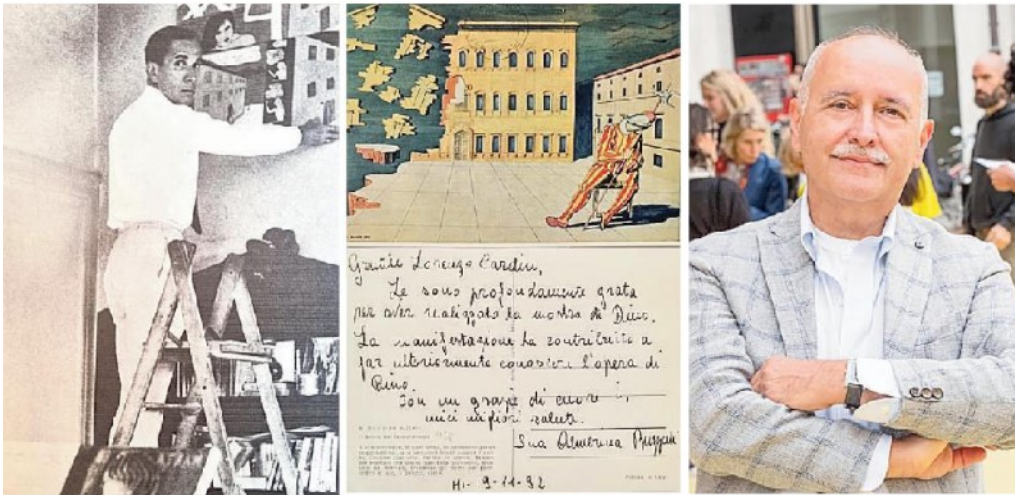 Gentile Lorenzo Cardin,
Le sono profondamente grata
per aver realizzato la mostra di Dino.
La manifestazione ha contribuito a
far ulteriormente conoscere l'opera di
Dino.
Con un grazie di cuore i
miei migliori saluti.
Sua Almerina Buzzati
Mi- 9-11-92